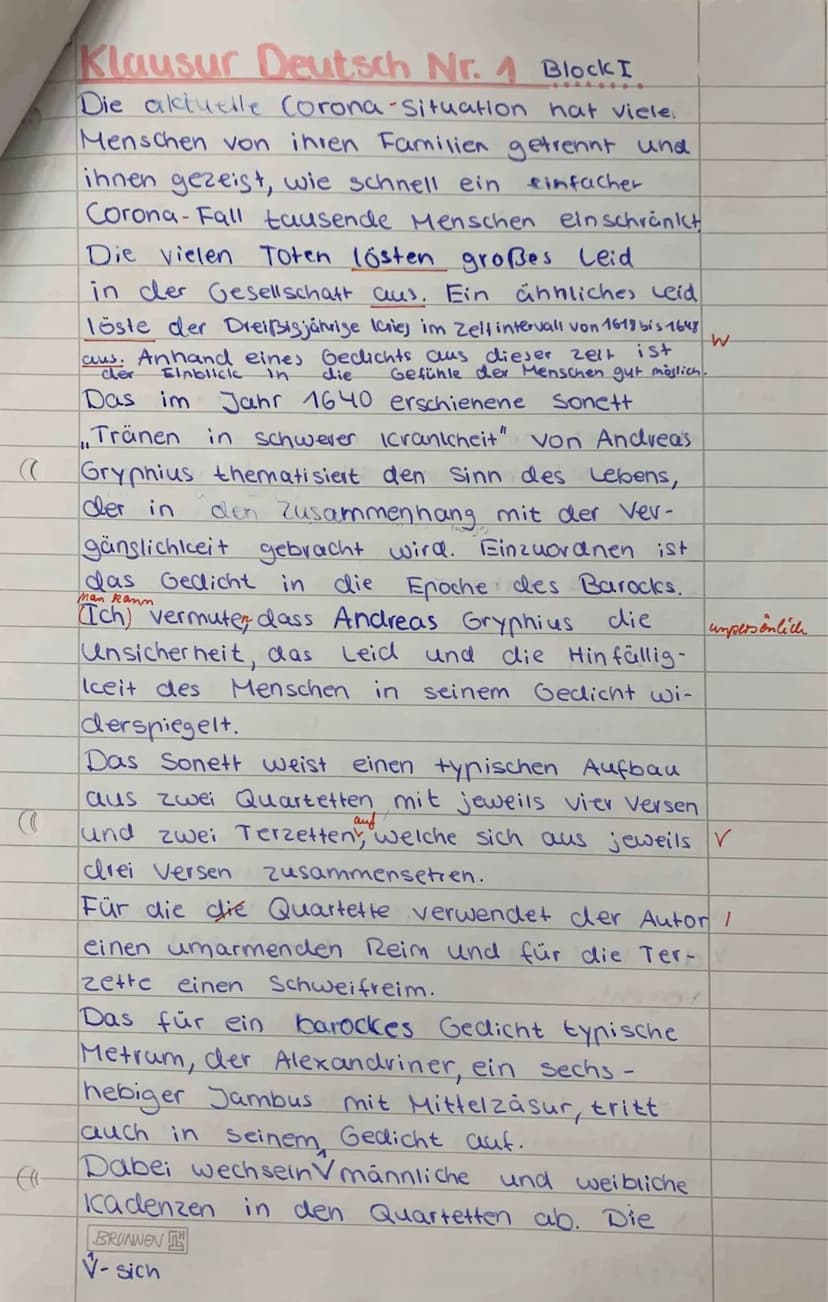 Klausur Deutsch Nr. 1 Block I
Die aktuelle Corona-Situation hat viele
Menschen von ihren Familien getrennt und
ihnen gezeigt, wie schnell ein einfacher
Corona-Fall tausende Menschen einschränkt
Die vielen Toten lösten großes Leid
in der Gesellschaft aus. Ein ähnliches Leid
löste der Dreißigjährige Krieg im Zeitintervall von 1618 bis 1648
W
aus. Anhand eines Gedichts aus dieser Zeit ist
der Einblick in die Gefühle der Menschen gut möglich.
Das im Jahr 1640 erschienene Sonett
„Tränen in schwerer Krankheit" von Andreas
Gryphius thematisiert den Sinn des Lebens,
der in den Zusammenhang mit der Ver-
gänglichkeit gebracht wird. Einzuordnen ist
das Gedicht in die Epoche des Barocks.
Man kann
(Ich) vermuten, dass Andreas Gryphius die
unpersönlich
Unsicherheit, das Leid und die Hinfällig-
keit des Menschen in seinem Gedicht wi-
derspiegelt.
Das Sonett weist einen typischen Aufbau
aus zwei Quartetten mit jeweils vier Versen
auf
und zwei Terzetten, welche sich aus jeweils V
drei Versen zusammensetzen.
Für die die Quartette verwendet der Autor I
einen umarmenden Reim und für die Ter-
zette einen Schweifreim.
Das für ein barockes Gedicht typische
Metrum, der Alexandriner, ein sechs-
hebiger Jambus mit Mittelzäsur, tritt
auch in seinem Gedicht auf.
Dabei wechseln männliche und weibliche
Kadenzen in den Quartetten ab. Die
BRUNNEN
V- sich